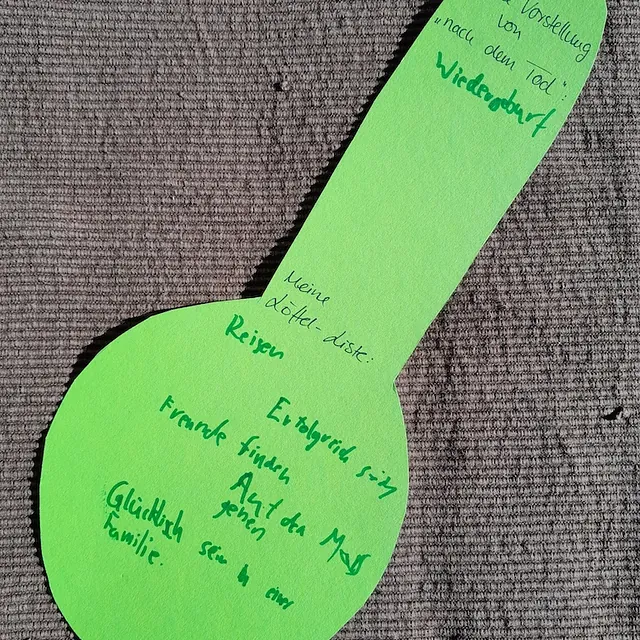 Vorstellung
von
„nach dem Tod“:
Wiedergeburt
Meine
Löffel-Liste:
Reisen
Erfolgreich sein
Freunde finden
Auf den
gehen
Glücklich sein in einer
Familie.